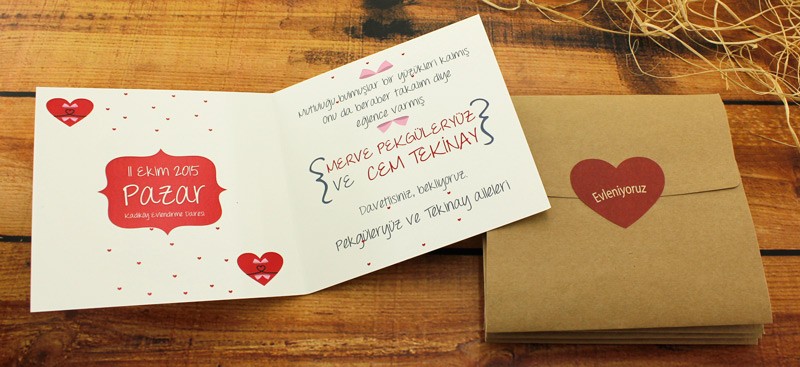 11 Ekim 2015
Pazar
Kadıköy Evlendirme Dairesi
Mutluluğu bulmuşlar bir yüzükleri kalmış
onu da beraber takalım diye
eğlence varmış
MERVE PEKGÜLERYÜZ
VE CEM TEKİNAY
Davetlisiniz, bekliyoruz.
Pekgüleryüz ve Tekinay aileleri
Evleniyoruz